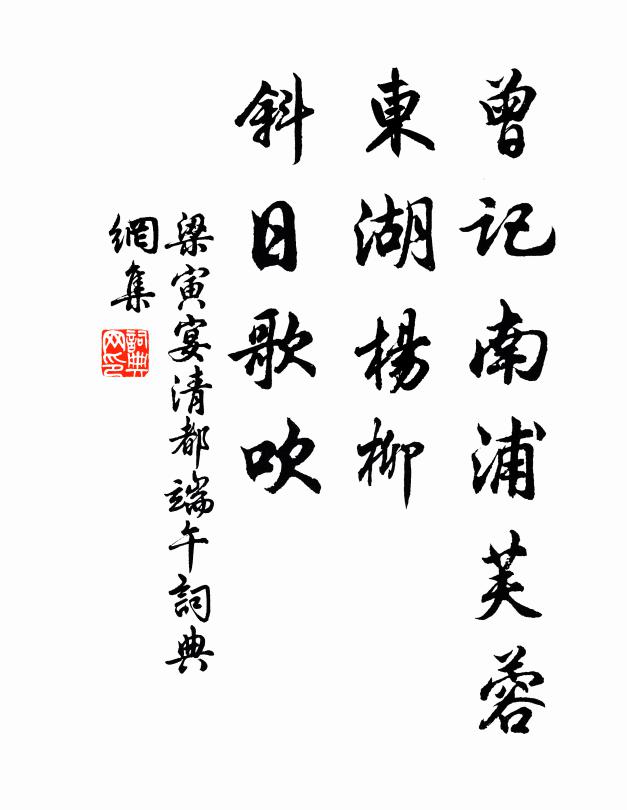 曾記南浦芙蓉
東湖楊柳
斜日歌吹
梁寅宴清都端午詞典
網集
詞典
网印